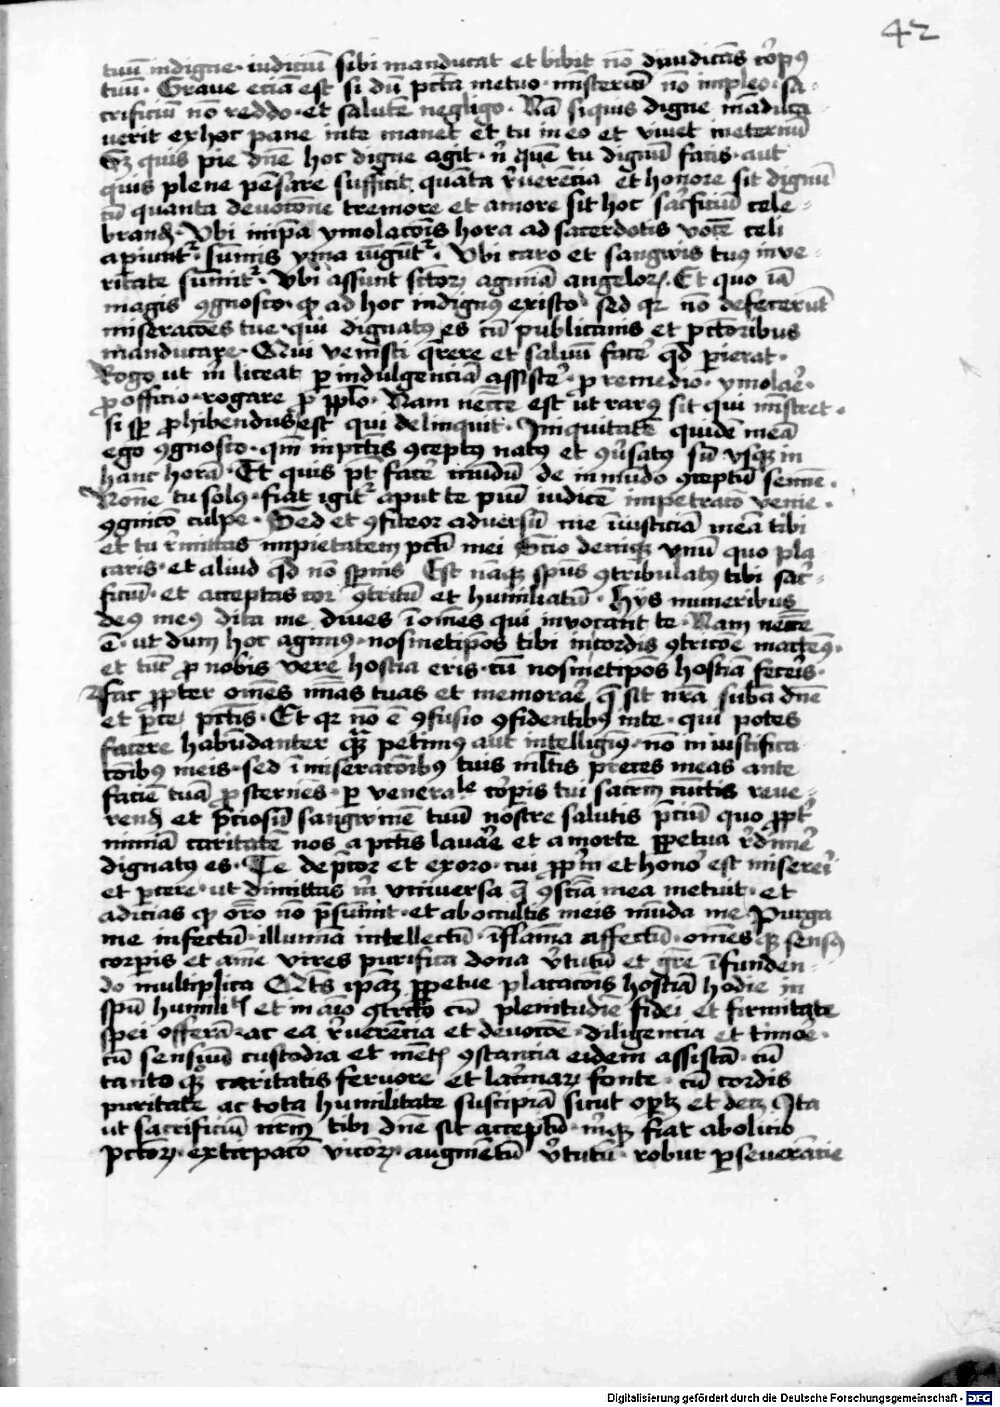 42
tuū indigne · iudiciū sibi manducat et bibit nō dijudicās cōrpꝯ
tuū · Graue eciā est si dū pctā metuo · mīsteriū nō impleo · sa-
crificiū nō reddo · et salutē negligo · Nā siquis digne māduca
uerit ex hoc pane in te manet et tu in eo et viuet in eternū
Sꝫ quis pie dn̄e hoc digne agit · nͥ quē tu dignū facis · aut
quis plene pēsare sufficit quāta rʼuerēcia et honore sit dignū
cū quanta deuocōne tremore et amore sit hoc sacʼficiū cele-
brandꝫ · Vbi in ip̄a ymolacōis hora ad sacerdotis vocē celi
apiuntʳ · sūmis yma iūgūtʳ · Vbi caro et sangwis tuꝯ in ve-
ritate sūmitʳ · Vbi assunt sc̄torꝫ agmīa angelorꝫ · Et quo iā
magis ꝯgnosco · qͥ ad hoc indignꝯ existo · sed qꝛ nō defecerūt
miseracōes tue · qui dignatꝯ es cū publicanis et pctōribus
manducare · Qui venisti qʼrere et saluū facʼe qd̄ ꝑierat ·
Rogo ut mͥ liceat ꝑ indulgenciā assistʼe · ꝓ remedio · ymolaʼe ·
ꝓ officio · rogare ꝓ ppl̄o · Nam necc̄e est ut rarꝯ sit qui mīstret ·
si sꝑ ꝓhibendus est qui delinquit · Iniquitatē quidē meā
ego ꝯgnosco · qm̄ in pctīs ꝯceptꝯ natꝯ et ꝯūsatꝯ sū vsqꝫ in
hanc horā · Et quis pt̄ facʼe mūdū de inmūdo ꝯceptū semīe ·
Nōne tu solꝯ · fiat igitʳ aput te piū iudicē impetracō venie ·
ꝯgnicō culpe · Sed et ꝯfiteor aduersū me īiusticiā meā tibi
et tu rʼmittas impietatem pctī mei Scio deniqꝫ vnū quo pla
caris · et aliud qd̄ nō sꝑnis Est nāqꝫ sp̄us ꝯtribulatꝯ tibi sacʼ-
ficiū · et acceptas cor ꝯtritū et humiliatū · Hys muneribus
deꝯ meꝯ dita me diues ī om̄es qui inuocant te · Nam necc̄e
ē · ut dum hoc agimꝯ · nosmetip̄os tibi in cordis ꝯtricōe mactemꝯ ·
et tūc ꝓ nobis vere hostia eris · cū nosmetip̄os hostiā fecerīs ·
Fac ꝓpter om̄es mīas tuas et memoraʼe qͣ sit nr̄a sūba dn̄e
et ꝑce pctīs · Et qꝛ nō ē ꝯfusio ꝯfidentibꝯ in te · qui potes
facere habūdanter qͣꝫ petimꝯ aut intelligimꝯ · nō in iustifica
cōibꝯ meis · sed ī miseracōibꝯ tuis ml̄tis preces meas ante
faciē tuā ꝓsternēs · ꝑ venerale cōrpis tui sacrm̄ cūctis reue-
rendꝫ et p̄ciosū sangwinē tuū nostre salutis p̄ciū quo ꝓptʼ
nimiā caritatē nos a pctīs lauaʼe et a morte ꝑpetua rʼdimʼe
dignatꝯ es · Te dep̄cor et exoro · cui ꝓpriū et honoʼ est misereʼi
et ꝑcere · ut dimittas mͥ vniuersa qͣ ꝯscīa mea metuit · et
adicias qͥ or̄o nō p̄sumit · et ab occultis meis mūda me Purga
me infectū · illumīa intellectū · īflāma affectū · om̄es qꝫ sensꝯ
corꝑis et aīe vires purifica dona vʼtutū et grē īfunden-
do multiplica Qtꝰ ip̄aꝫ ꝑpetue placacōis hostiā hodie in
sp̄u humilitꝭ et in aīo ꝯtricto cū plenitudīe fidei et firmitate
spei offerā · ac ea rʼuerēcia et deuocōe · diligencia et timoʼe ·
cū sensuū custodia et mētꝭ ꝯstancia eidem assistā · cū
tanto qͦꝫ caritatis feruore et lacʼimarꝫ fonte · cū cordis
puritate ac tota humilitate suscipiā sicut oꝑtꝫ et decꝫ Ita
ut sacrificiū nrm̄ tibi dn̄e sit acceptū · mͥqꝫ fiat abolicio
pctōrꝫ · extirpacō vicorꝫ · augmētū vʼtutū · robur ꝑseuerācie
Digitalisierung gefördert durch die Deutsche Forschungsgemeinschaft - DFG